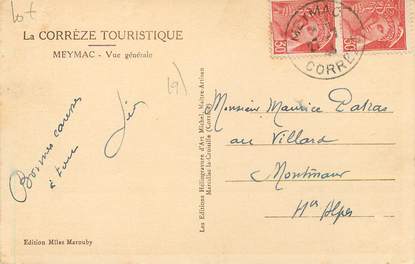 Lot
La CORRÈZE TOURISTIQUE
MEYMAC - Vue générale
Bonnes
à tous
Edition Mlles Marouby
Les Editions Héliogravure d'Art Michel, Maître-Artisan
Marcillac-la-Croisille (Corrèze)
MEYMAC
CORRÈZE
50
50
Monsieur Maurice
au Villard
Montmaur
Htes Alpes